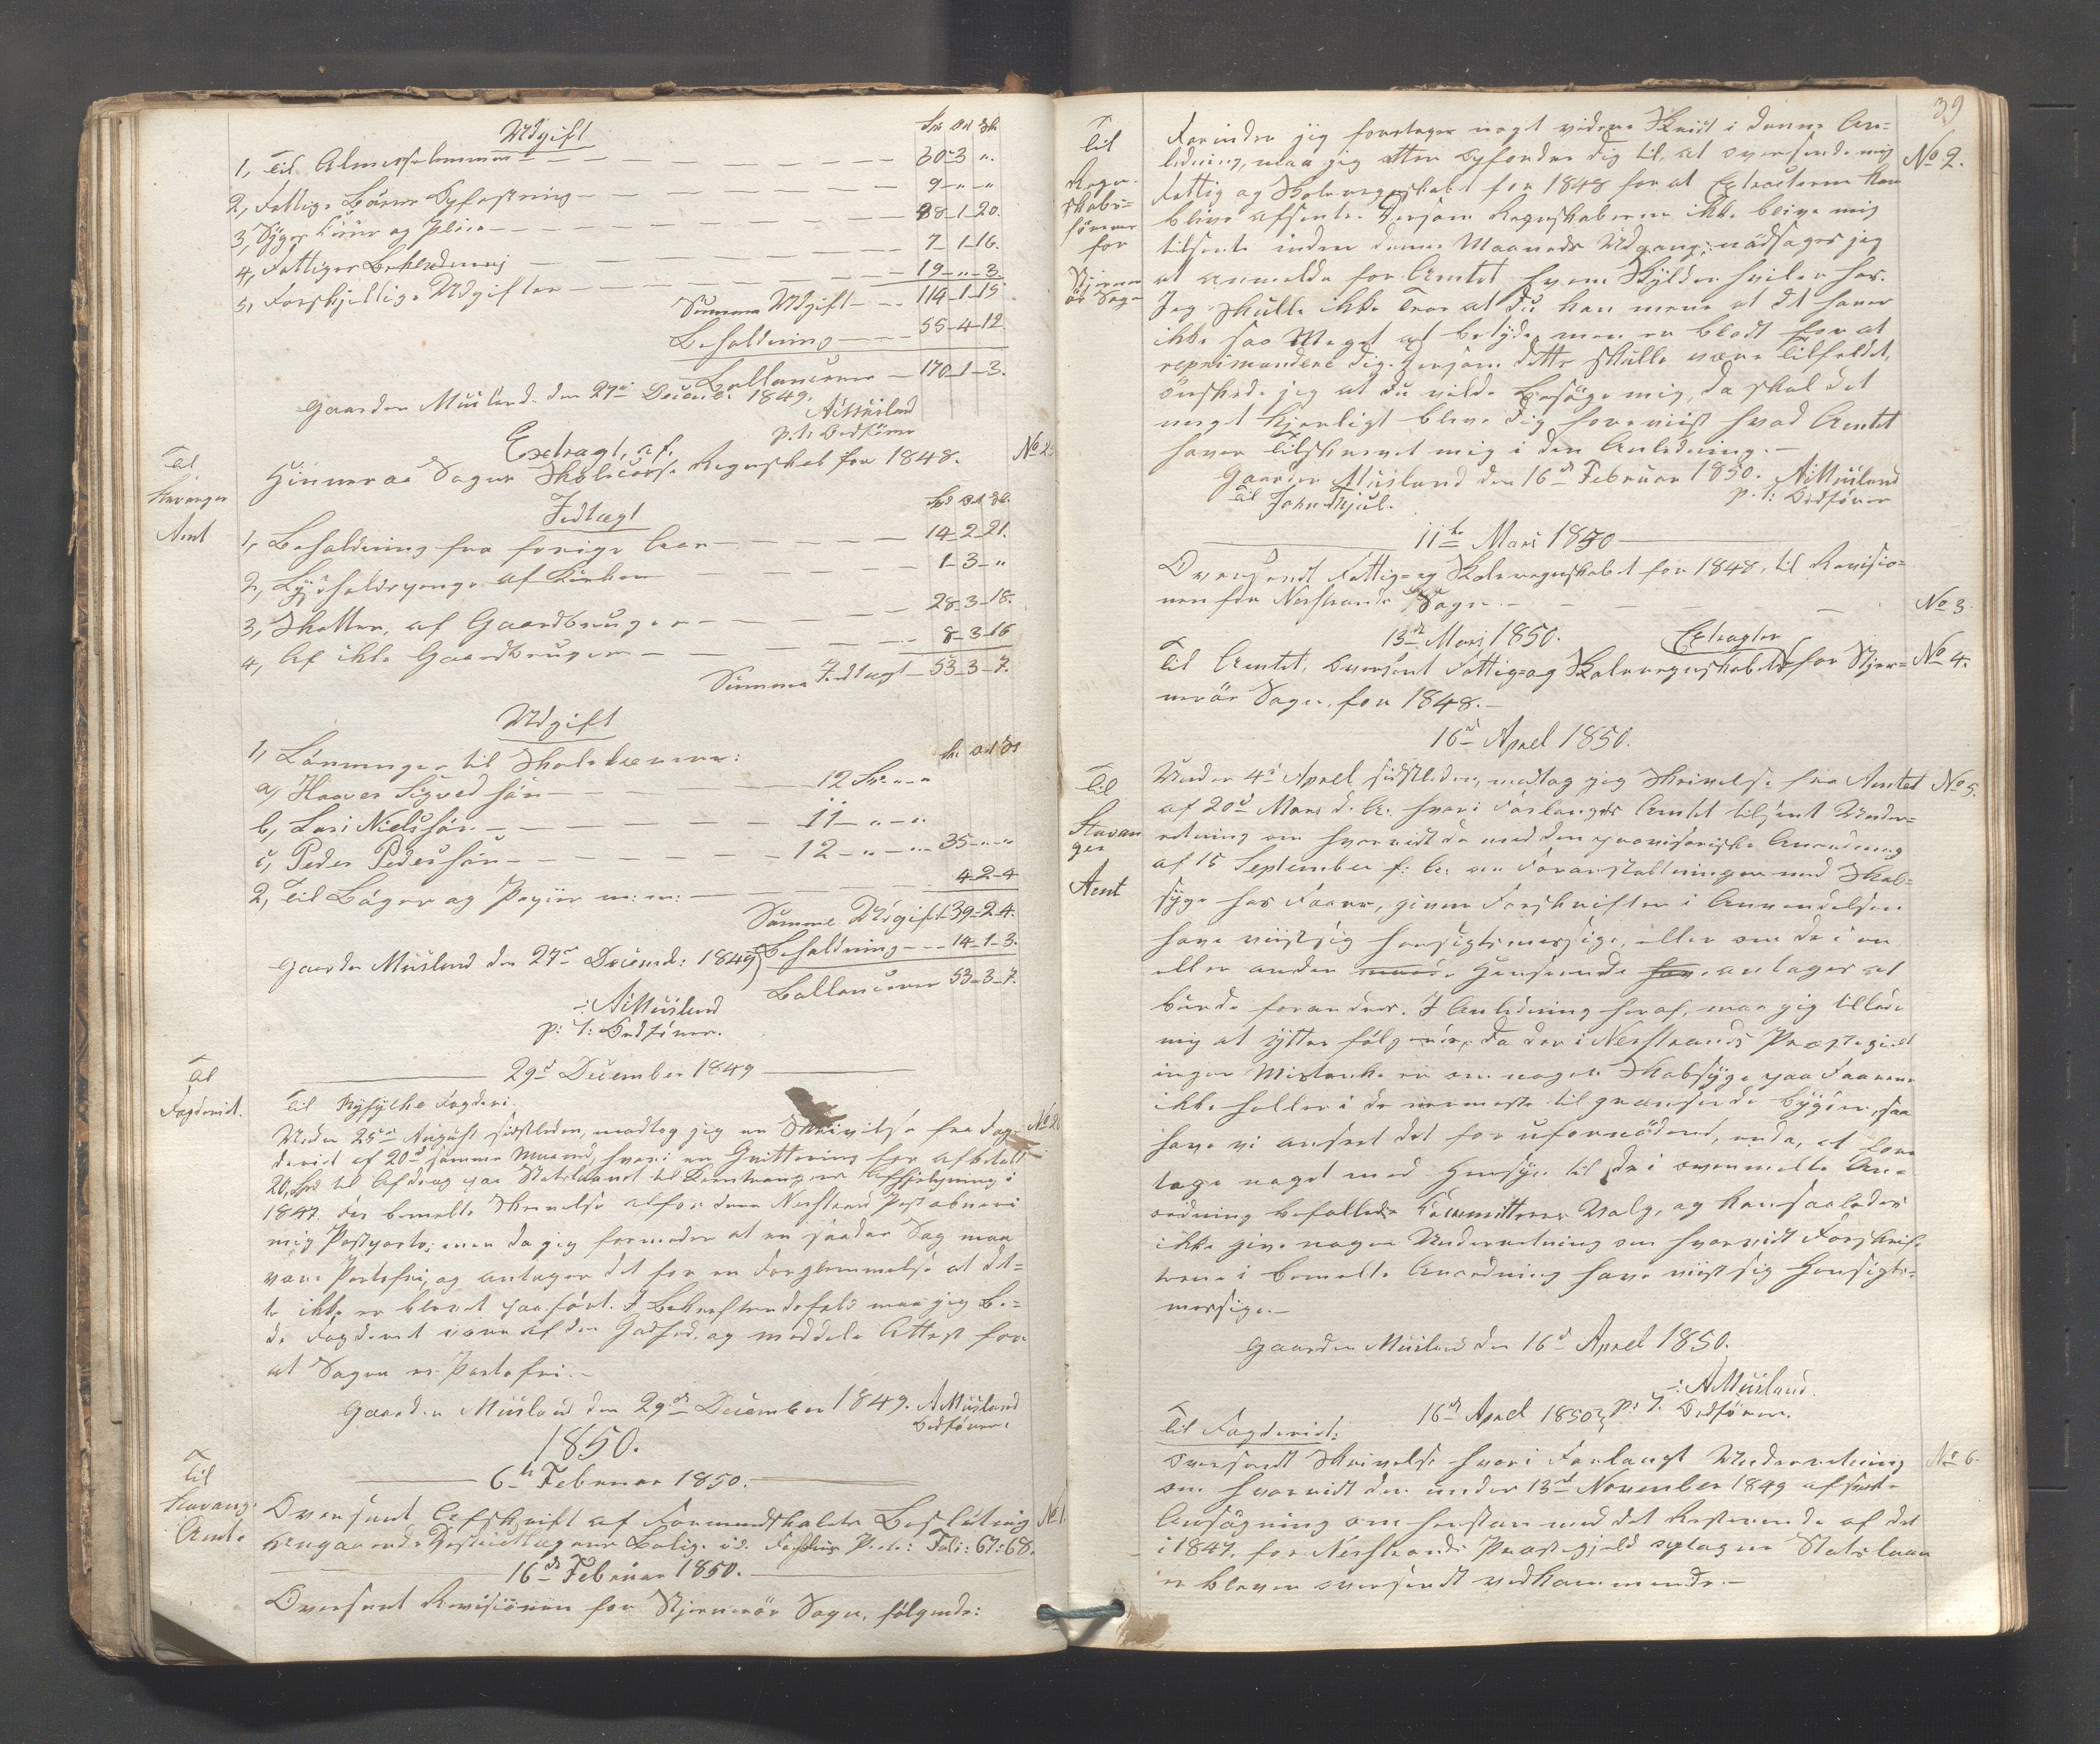 Udgift
Spd Ort Sk
1, Til Almesselemmer — 30-3 "
2, Fattige Börns Opfostring — 9-"-"
3, Syges Cuur og Pleie — 88-1-20.
4, Fattiges Beklædning — 7-1-16.
5, Forskjellige Udgifter — 19-"-3.
Summa Udgift — 114-1-15
Beholdning — 55-4-12.
Ballancerer — 170-1-3.
Gaarden Musland den 27de Decemb: 1849.
AMusland
p. t. Ordförer
Til Stavanger Amt
Extragt, af,
No 2
Hinneraa Sogns Skolecasse Regnskab for 1848.
Indtægt
Spd Ort Sk
1, Beholdning fra forige Aar — 14-2-21.
2, Lysholdspenge af Kirken — 1-3-"
3, Skatten, af Gaardbruger — 28-3-18.
4, Af ikke Gaardbruger — 8-3-16
Summa Indtægt — 53-3-7.
Udgift
1, Lönninger til Skolelærerne:
a, Haaver Sigvedsön — 12 Sp: "-"
b, Lars Nielssön — 11-"-"
c, Peder Pederssön — 12-"-" — 35-"-"
2, Til Böger og Papiir m: m: — 4-2-4
Summa Udgift 39-2-4.
Beholdning — 14-1-3.
Gaarden Musland den 27de Decemb: 1849
Ballancerer 53-3-7.
AMusland
p: t: Ordförer.
29de December 1849
Til Fogderiet.
Til Ryfylke Fogderi.
Under 25de August sidstleden, modtog jeg en Skrivelse fra Fog-
No 2
deriet af 20de samme Maaned, hvori en Qvittering for afbetalt
20 Spd til Afdrag paa Statslaanet til Korntrangens Afhjelpning i
1847. for bemelte Skrivelse affordrer Nerstrand Postaabneri
mig Postporto; men da jeg formoder at en saadan Sag maa
være Portofri, og antager det for en Forglemmelse at det-
te ikke er blevet paafört. I Bekræftendefald maa jeg be-
de Fogderiet være af den Godhed, og meddele Attest for
at Sagen er Portofri. —
Gaarden Musland den 29de December 1849. AMusland
Ordförer.
1850.
6te Februar 1850.
Til Stavang: Amt
Oversendt Afskrift af Formandskabets Beslutning
No 1
angaaende Fol: 67: 68.
16de Februar 1850.
Oversendt Revisionen for Stjernerös Sogn, fölgende:
39
Til Regnskabsförer for Stjernerös Sogn
Forinden jeg foretager noget videre Skridt i denne An-
No 2.
ledning, maa jeg atter opfordre dig til, at oversende mig
Fattig og Skoleregnskabet for 1848 for at Extracterne kan
blive afsendte. Dersom Regnskaberne ikke blive mig
tilsendt inden denne Maaneds Udgang, nödsages jeg
at anmelde for Amtet hvem Skylden hviler hos.
Jeg skulle ikke troe at du kan mene at det haver
ikke saa Meget at betyde, men er blodt for at
reprimandere dig. Dersom dette skulle være Tilfeldet,
önskede jeg at du vilde besöge mig, da skal det
meget kjerligt blive dig foreviist hvad Amtet
haver Tilskrevet mig i den Anledning. —
Gaarden Musland den 16de Februar 1850. AMusland
Til John Kjul.
p. t: Ordförer
11te Mars 1850
Oversendt Fattig- og Skoleregnskabet for 1848, til Revisio-
nen for Nerstrands Sogn. —
No 3
13de Mars 1850.
Extragter
Til Amtet, oversent Fattig- og Skoleregnskabet for Stjer-
No 4.
nerös Sogn, for 1848. —
16de April 1850.
Til Stavanger Amt
Under 4de April sidstleden, modtog jeg Skrivelse fra Amtet
No 5.
af 20de Mars d. A. hvori Forlanges Amtet tilsent Under-
retning om hvorvidt de med den provisoriske Anordning
af 15 September f: A: om Foranstaltninger mod Skab-
syge hos Faarene, givne Forskrifter i Anvendelsen
have viist sig hensigtsmessige, eller om de i en
eller anden Henseende antages at
burde forandres. I Anledning heraf, maa jeg tillade
mig at yttre fölgende, da der i Nerstrands Præstegield
ingen Mistanke er om nogen Skabsyge paa Faarene
ikke heller i de nermeste tilgrænsende bygder, saa
have vi anseet det for ufornödend, enda, at fore
tage noget med Hensyn til de i ovenmelte An-
ordning befallede Committeers Valg, og kan saaledes
ikke give nogen Underretning om hvorvidt Forskrif-
terne i bemelte Anordning have viist sig Hensigts-
messige. —
Gaarden Musland den 16de April 1850.
AMusland.
p: t. Ordförer.
16de April 1850
Til Fogderiet:
oversendt Skrivelse hvori Forlangt Underretning
No 6.
om hvorvidt den under 13de November 1849 afsendte
Ansögning om henstan med det Resterende af det
i 1847, for Nerstrands Præstegjeld optagne Statslaan
er bleven oversendt vedkommende. —